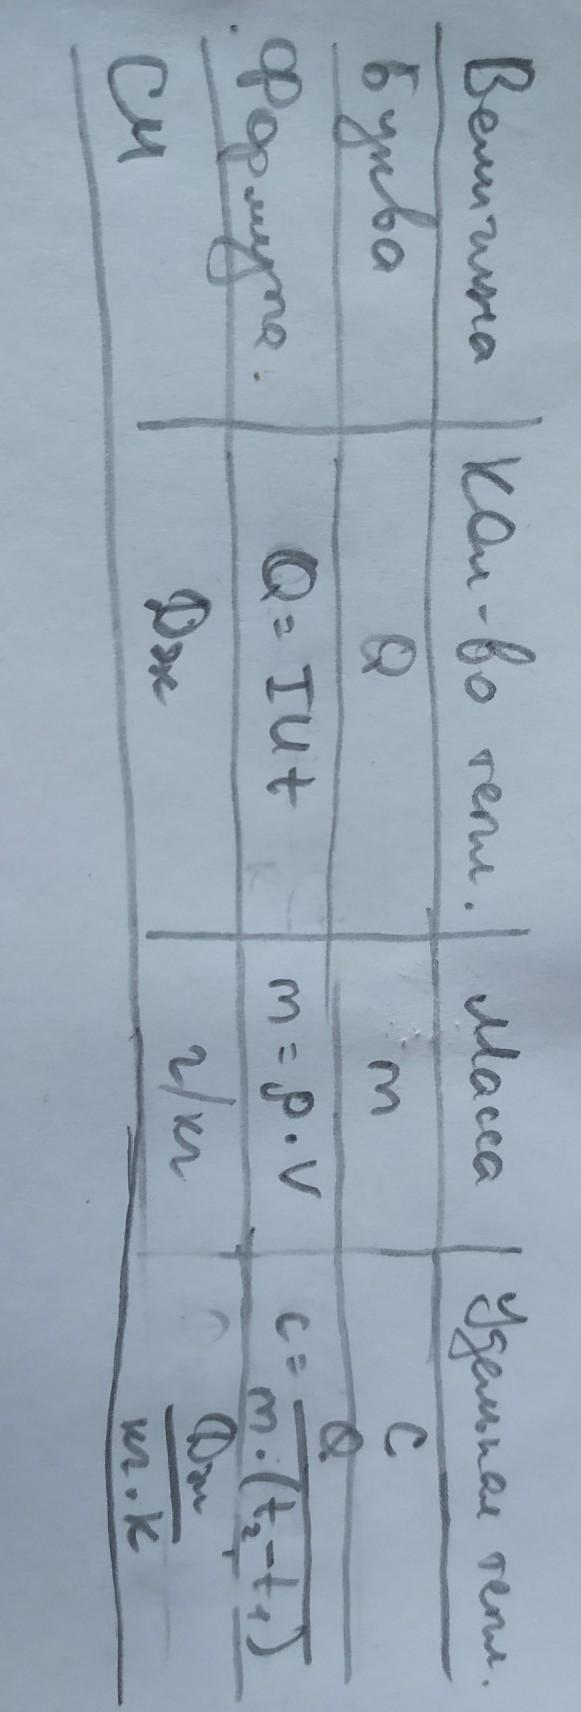 Величина | Кол-во тепл. | Масса | Удельная тепл.
Буква | Q | m | c
Формула. | Q = IUt | m = ρ · V | c = Q / m · (t₂ - t₁)
СИ | Дж | г/кг | Дж / кг · К